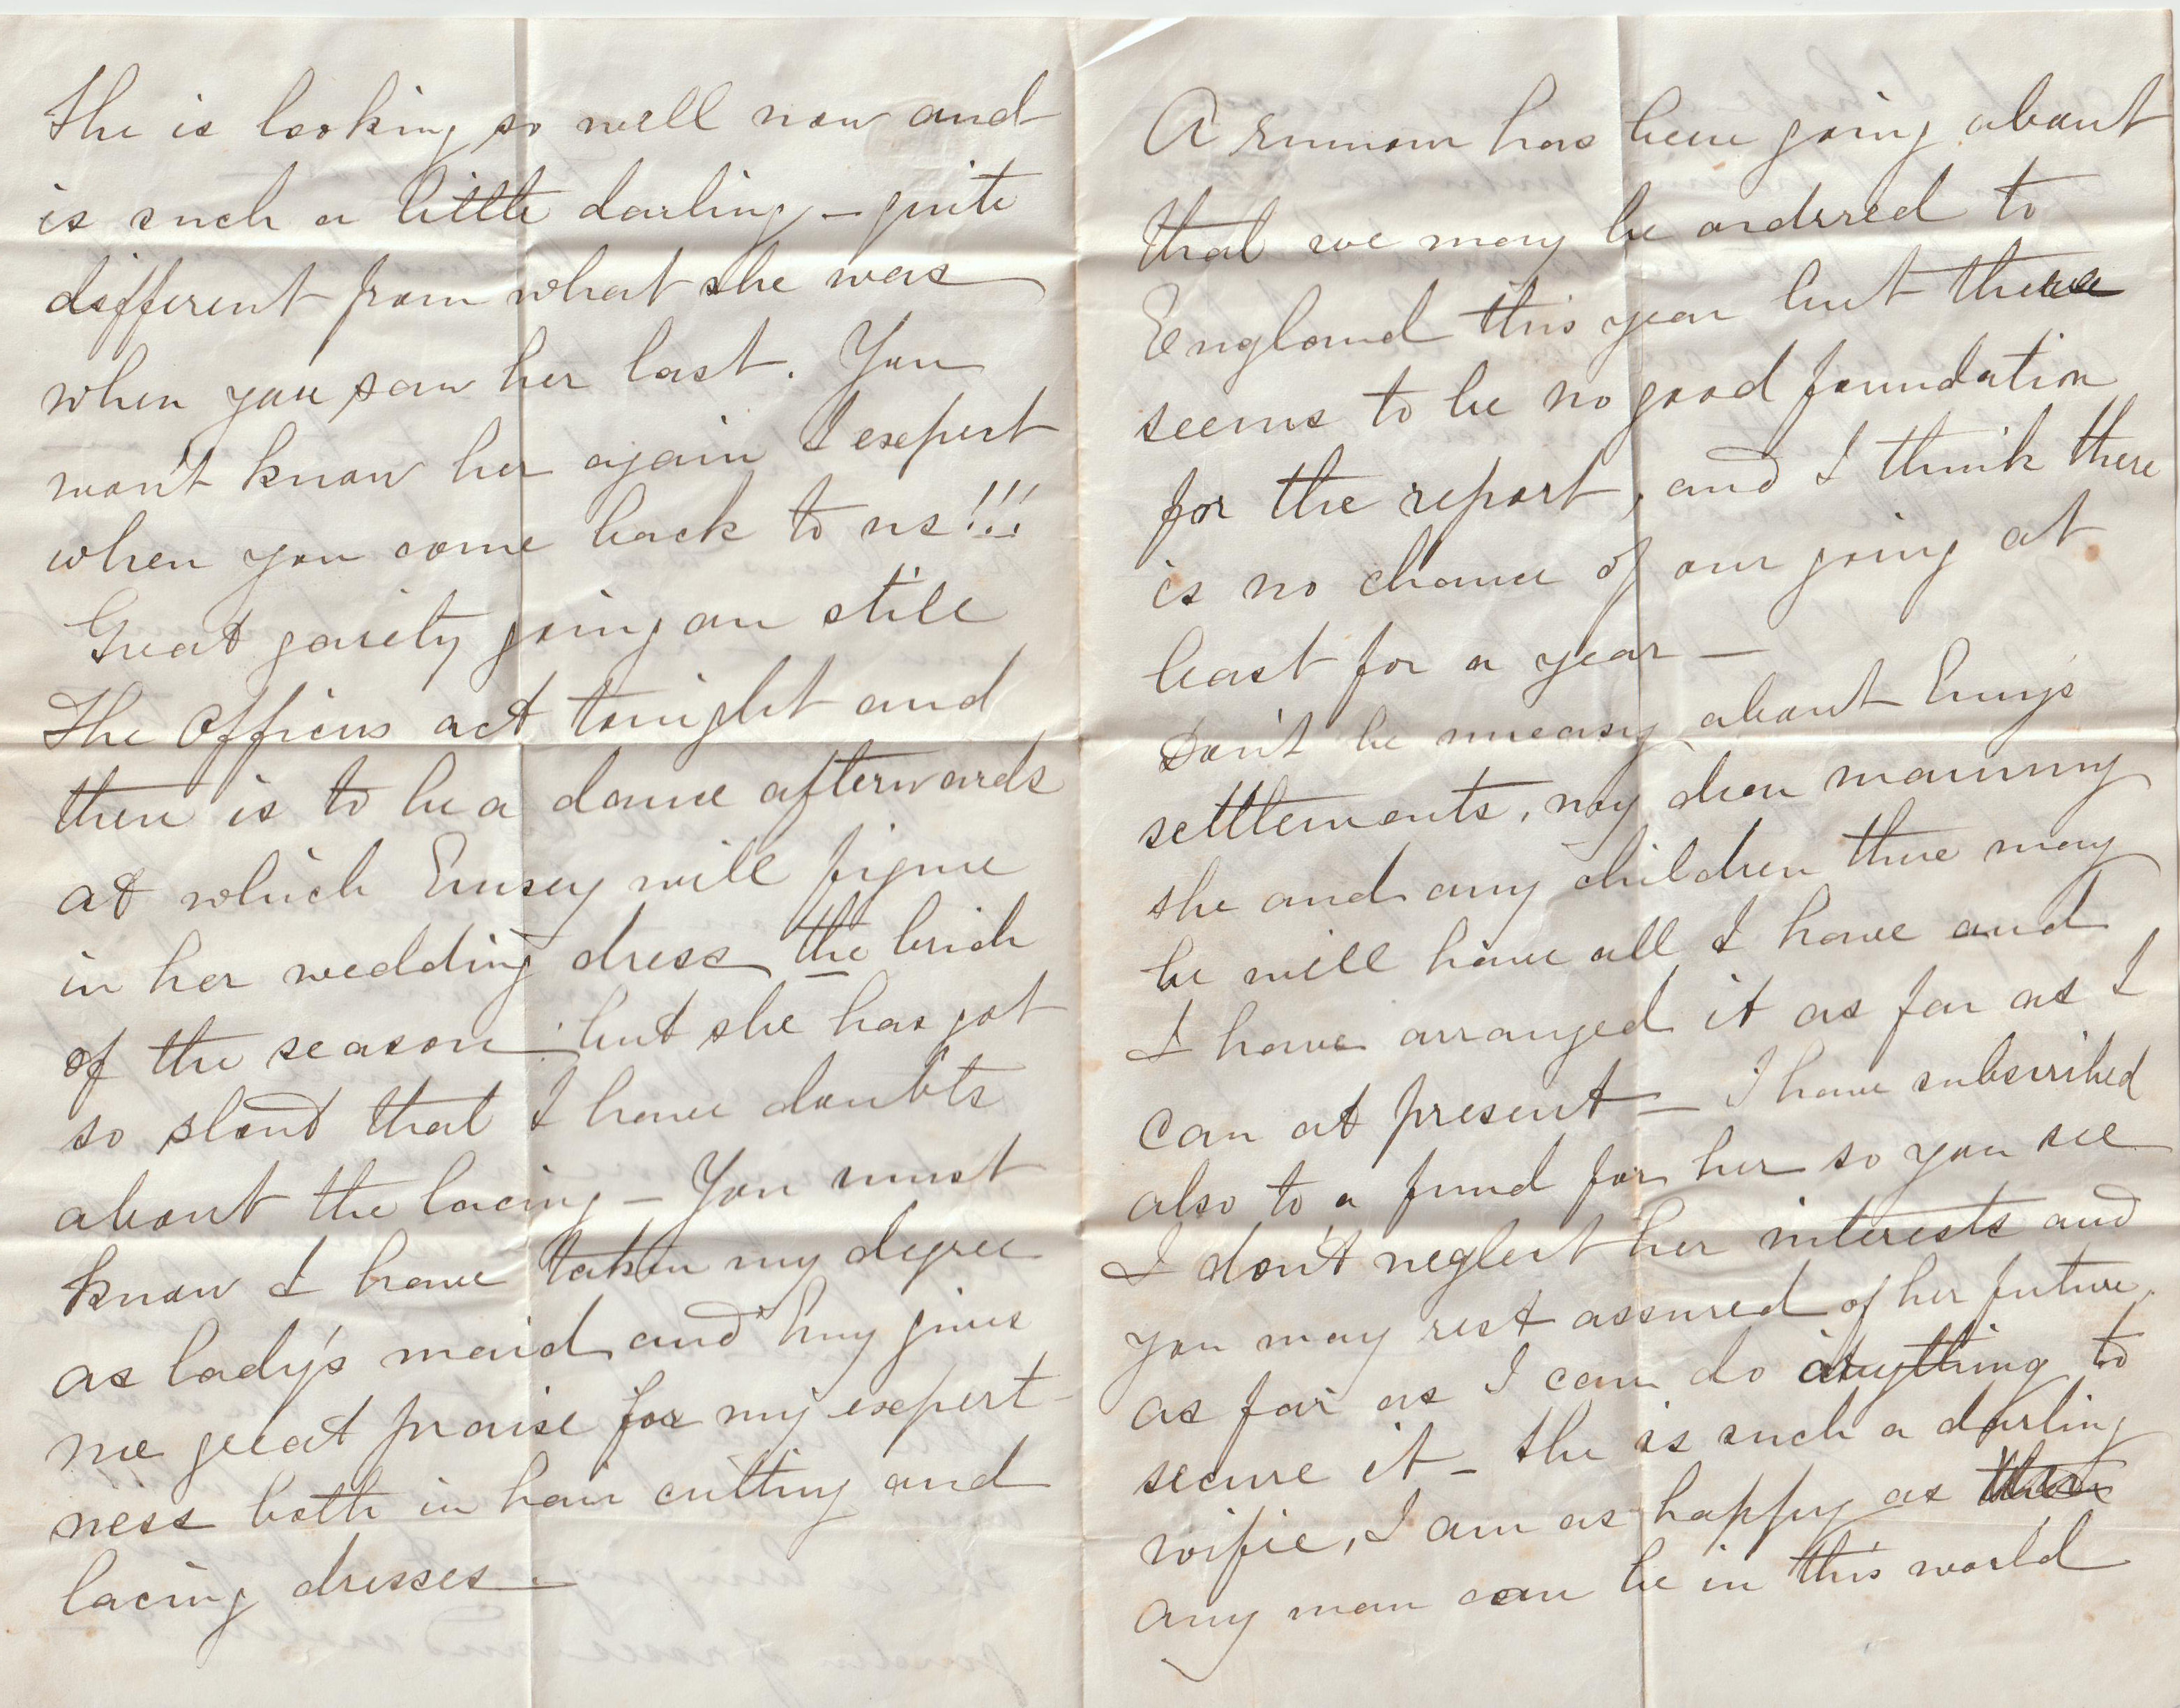 She is looking so well now and
is such a little darling – quite
different from what she was
when you saw her last. You
won't know her again I expect
when you come back to us!!!
Great gaiety going on still
The Officers act tonight and
there is to be a dance afterwards
at which Emsey will figure
in her wedding dress the bride
of the season but she has got
so stout that I have doubts
about the lacing – You must
know I have taken my degree
as lady's maid and Emy gives
me great praise for my expert-
ness both in hair cutting and
lacing dresses –
A rumour has been going about
that we may be ordered to
England this year but there
seems to be no good foundation
for the report, and I think there
is no chance of our going at
least for a year –
Don't be uneasy about Emy's
settlements, my dear mammy
she and any children there may
be will have all I have and
I have arranged it as far as I
can at present – I have subscribed
also to a fund for her so you see
I don't neglect her interests and
you may rest assured of her future,
as far as I can do anything to
secure it – She is such a darling
wifie, I am as happy as
any man can be in this world